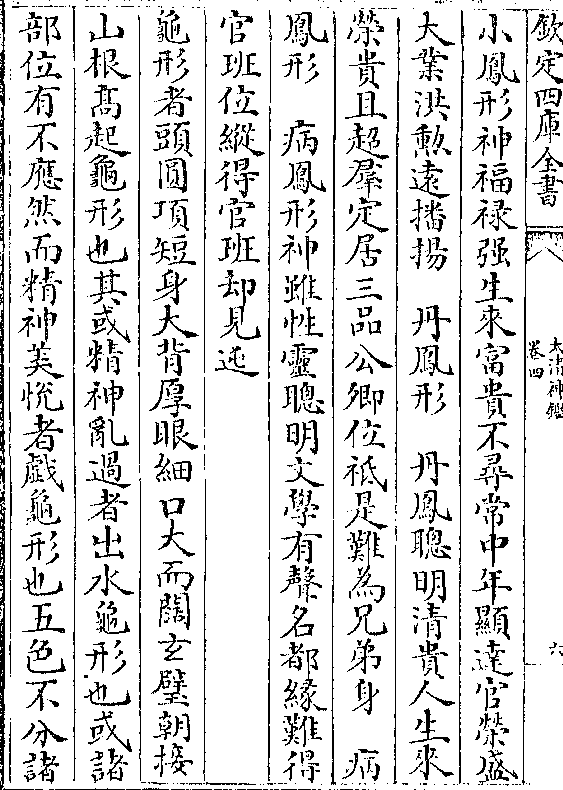 欽定四庫全書
太清神鑑
卷四
六
小鳳形神福祿强生來富貴不尋常中年顯達官榮盛
大業洪勲遠播揚 丹鳳形 丹鳳聰明清貴人生來
榮貴且超羣定居三品公卿位祗是難為兄弟身 病
鳳形 病鳳形神雖性靈聰明文學有聲名都緣難得
官班位縱得官班却見迍
龜形者頭圓項短身大背厚眼細口大而闊玄壁朝接
山根高起龜形也其或精神亂過者出水龜形也或諸
部位有不應然而精神美悅者戲龜形也五色不分諸